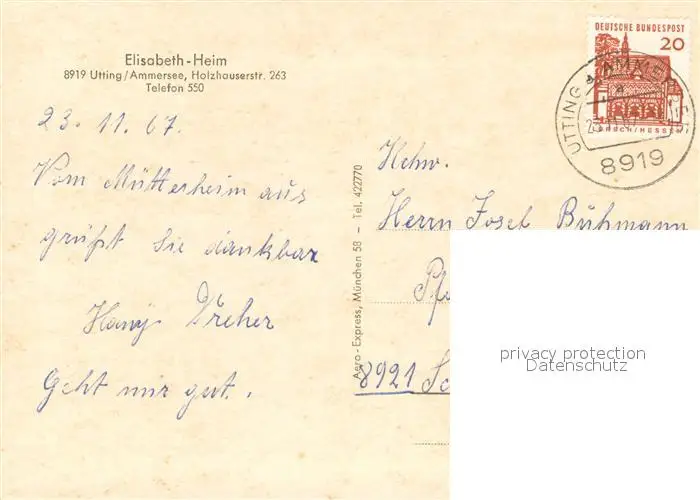 Elisabeth-Heim
8919 Utting/Ammersee, Holzhauserstr. 263
Telefon 550
23. 11. 67.
Vom Mütterheim aus
grüßt Sie dankbar
Hanÿ Dreher
Geht mir gut.
Aero-Express, München 58 – Tel. 422770
DEUTSCHE BUNDESPOST
20
LORSCH/HESSEN
UTTING AMMERSEE
8919
Hchw.
Herrn Josef Bühmann
Pf
8921 Sc
privacy protection
Datenschutz